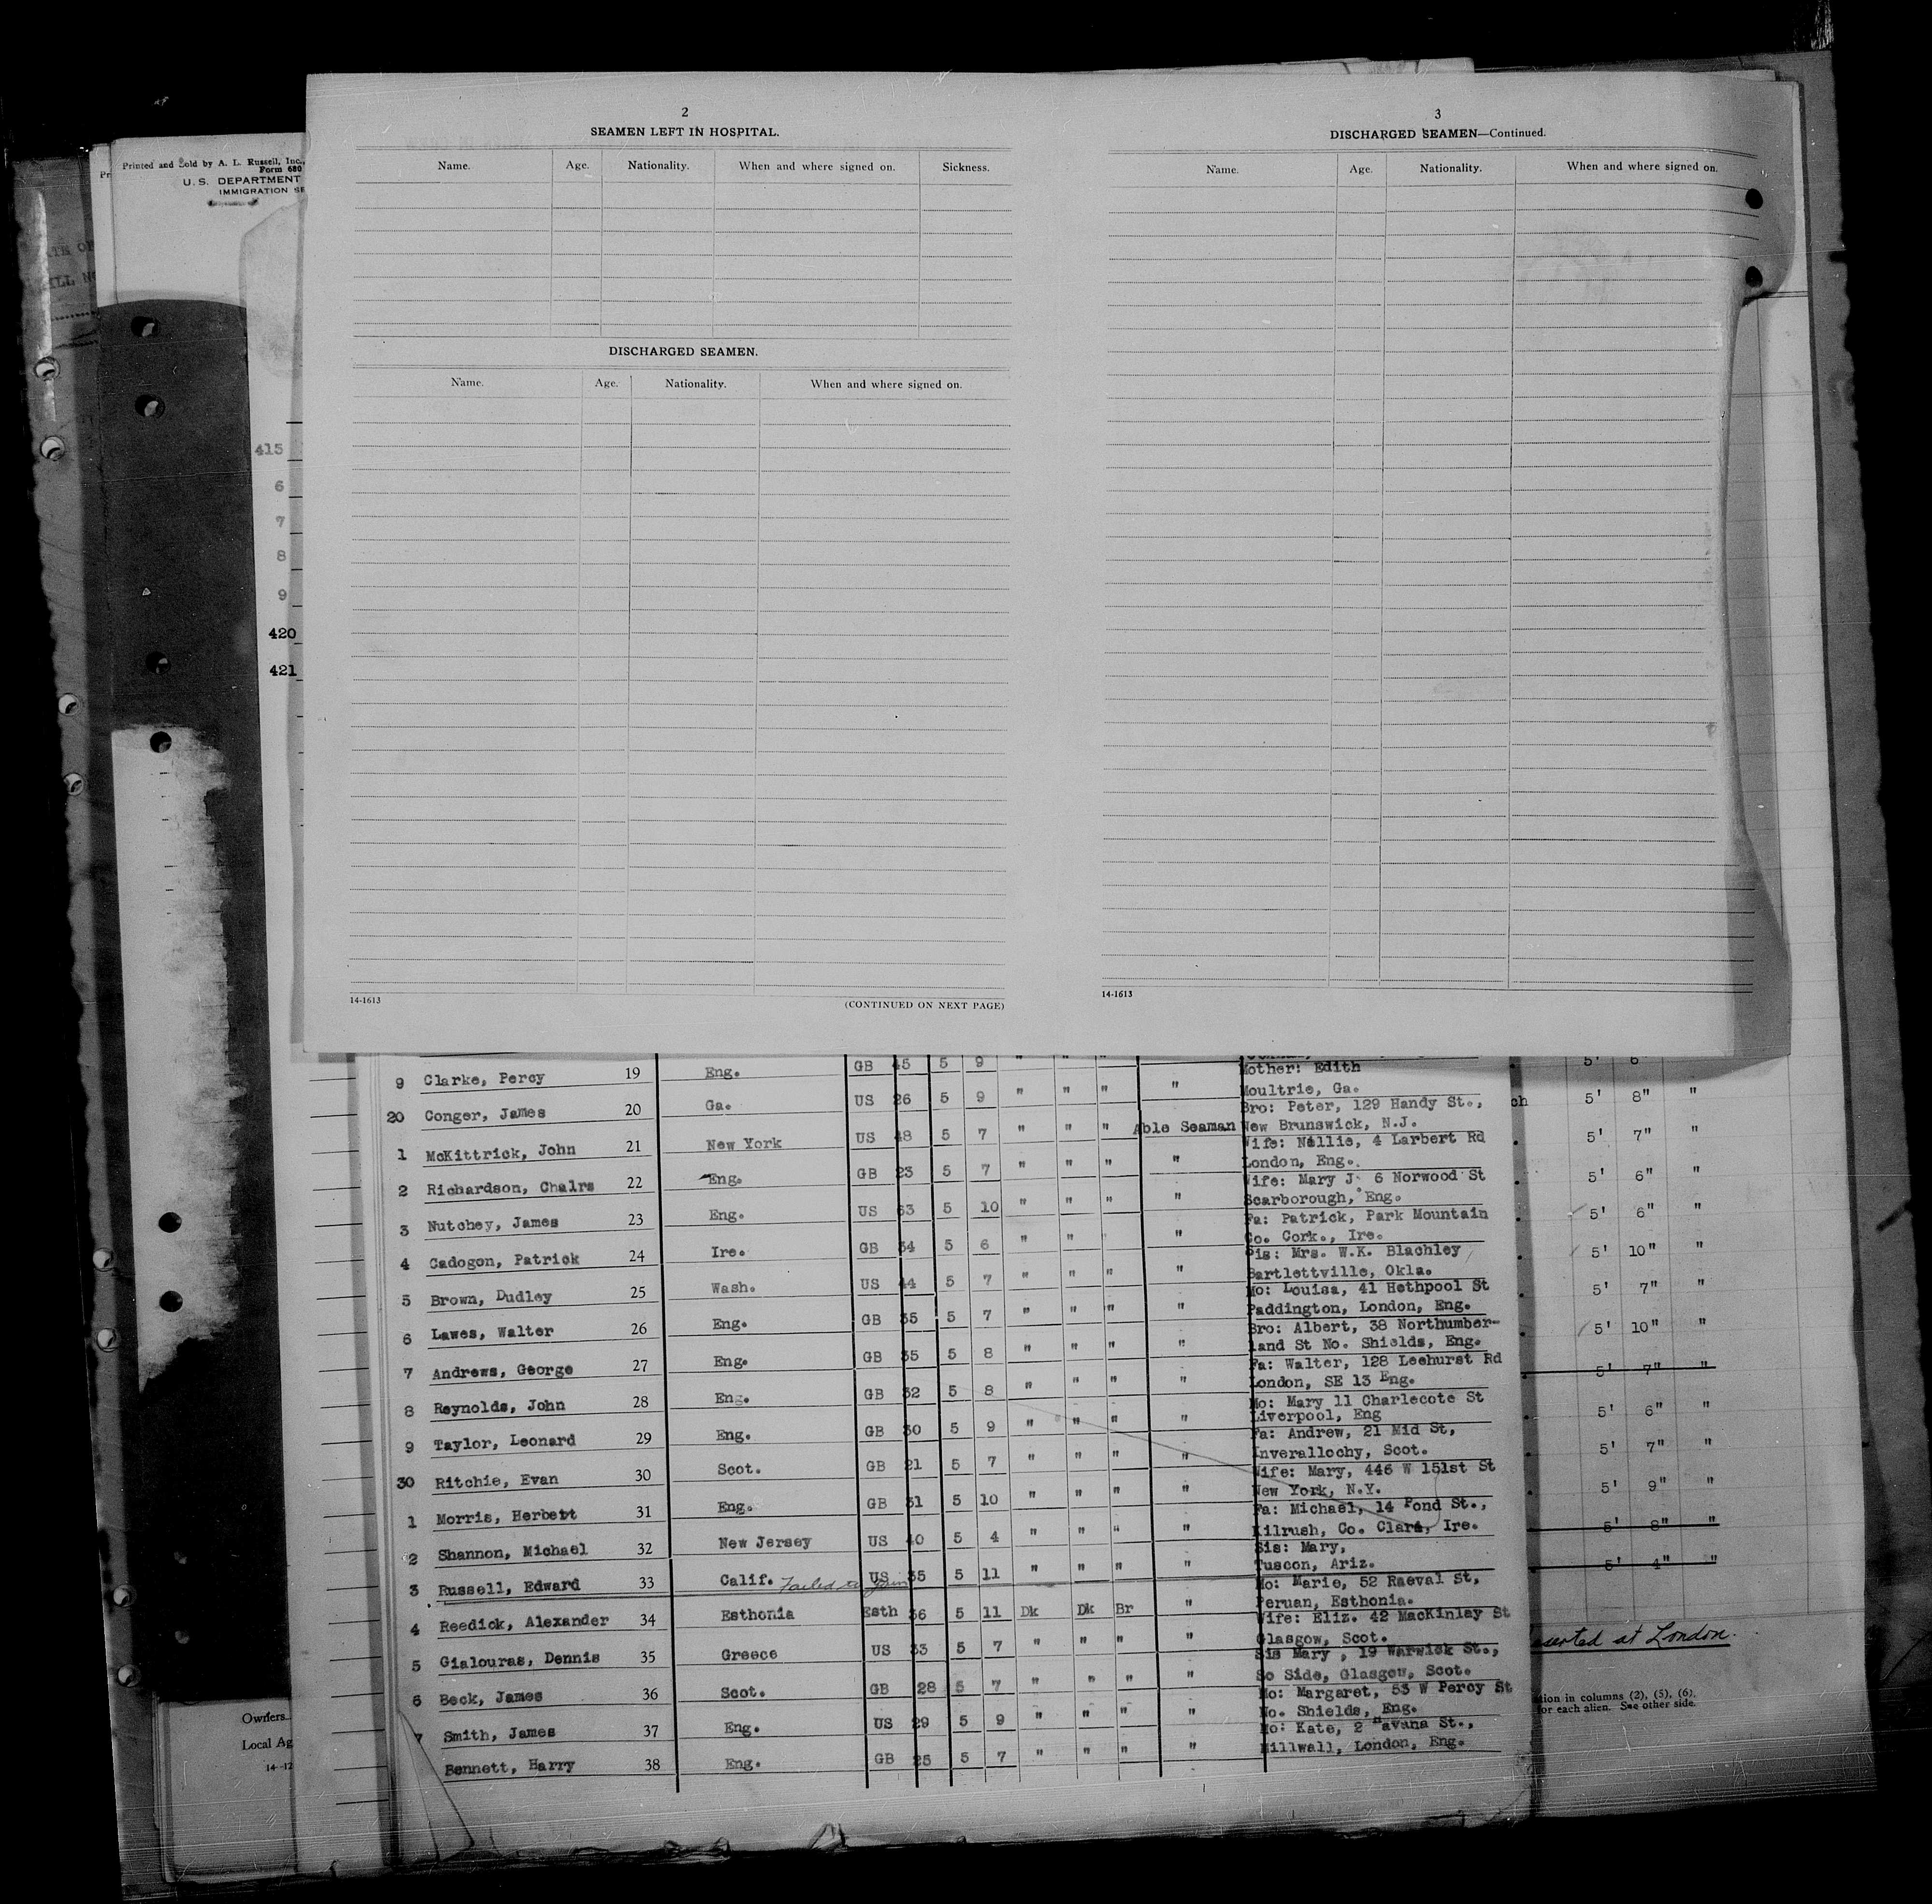 Printed and Sold by A. L. Russell, Inc.,
Form 680
U. S. DEPARTMENT
IMMIGRATION SE
415
6
7
8
9
420
421
2
SEAMEN LEFT IN HOSPITAL.
Name. Age. Nationality. When and where signed on. Sickness.
DISCHARGED SEAMEN.
Name. Age. Nationality. When and where signed on.
14-1613 (CONTINUED ON NEXT PAGE)
3
DISCHARGED SEAMEN—Continued.
Name. Age. Nationality. When and where signed on.
14-1613
9 Clarke, Percy 19 Eng. GB 45 5 9 " " "
Mother: Edith
Moultrie, Ga.
20 Conger, James 20 Ga. US 26 5 9 " " " "
Bro: Peter, 129 Handy St.,
New Brunswick, N.J.
1 McKittrick, John 21 New York US 48 5 7 " " " Able Seaman
Wife: Nellie, 4 Larbert Rd
London, Eng.
2 Richardson, Chalrs 22 Eng. GB 23 5 7 " " " "
Wife: Mary J. 6 Norwood St
Scarborough, Eng.
3 Nutchey, James 23 Eng. US 63 5 10 " " " "
Fa: Patrick, Park Mountain
Co. Cork., Ire.
4 Cadogon, Patrick 24 Ire. GB 34 5 6 " " "
Sis: Mrs. W.K. Blachley
Bartlettville, Okla.
5 Brown, Dudley 25 Wash. US 44 5 7 " " " "
Mo: Louisa, 41 Hethpool St
Paddington, London, Eng.
6 Lawes, Walter 26 Eng. GB 35 5 7 " " " "
Bro: Albert, 38 Northumber-
land St No. Shields, Eng.
7 Andrews, George 27 Eng. GB 35 5 8 " " " "
Fa: Walter, 128 Leehurst Rd
London, SE 13 Eng.
8 Reynolds, John 28 Eng. GB 32 5 8 " " " "
Mo: Mary 11 Charlecote St
Liverpool, Eng
9 Taylor, Leonard 29 Eng. GB 30 5 9 " " " "
Fa: Andrew, 21 Mid St,
Inverallochy, Scot.
30 Ritchie, Evan 30 Scot. GB 21 5 7 " " " "
Wife: Mary, 446 W 151st St
New York, N.Y.
1 Morris, Herbert 31 Eng. GB 31 5 10 " " " "
Fa: Michael, 14 Pond St.,
Kilrush, Co. Clare, Ire.
2 Shannon, Michael 32 New Jersey US 40 5 4 " " " "
Sis: Mary,
Tuscon, Ariz.
3 Russell, Edward 33 Calif. Failed to join US 35 5 11 " " " "
Mo: Marie, 52 Raeval St,
Peruan, Esthonia.
4 Reedick, Alexander 34 Esthonia Esth 36 5 11 Dk Dk Br "
Wife: Eliz. 42 MacKinlay St
Glasgow, Scot.
5 Gialouras, Dennis 35 Greece US 33 5 7 " " " "
Sis Mary, 19 Warwick St.,
So Side, Glasgow, Scot.
6 Beck, James 36 Scot. GB 28 5 7 " " " "
Mo: Margaret, 53 W Percy St
No. Shields, Eng.
7 Smith, James 37 Eng. US 29 5 9 " " " "
Mo: Kate, 2 Havana St.,
Millwall, London, Eng.
Bennett, Harry 38 Eng. GB 25 5 7 " " " "
5' 6"
ch 5' 8" "
5' 7" "
5' 6" "
5' 6" "
5' 10" "
5' 7" "
5' 10" "
5' 7" "
5' 6" "
5' 7" "
5' 9" "
5' 8" "
5' 4" "
serted at London.
tion in columns (2), (5), (6),
for each alien. See other side.
Owners
Local Ag
14-12